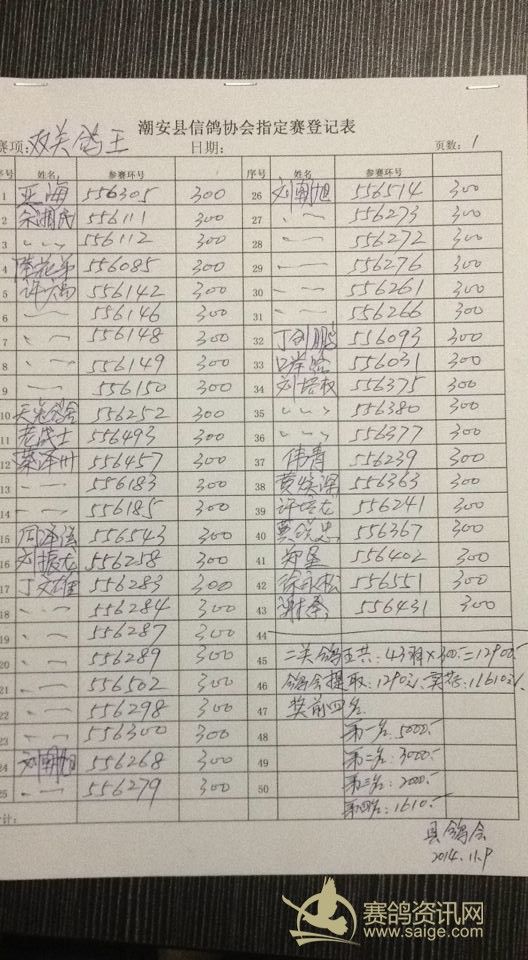 潮安县信鸽协会指定赛登记表
赛项:双关鸽王 日期: 页数:1
序号 姓名 参赛环号 序号 姓名 参赛环号
1 亚海 556305 300 26 556514 300
2 余湘民 556111 300 27 〃 556273 300
3 〃 556112 300 28 〃 556272 300
4 556085 300 29 〃 556276 300
5 556142 300 30 〃 556261 300
6 〃 556146 300 31 〃 556266 300
7 〃 556148 300 32 丁剑鹏 556093 300
8 〃 556149 300 33 556031 300
9 〃 556150 300 34 刘培权 556375 300
10 556252 300 35 〃 556380 300
11 老战士 556493 300 36 〃 556377 300
12 蔡泽州 556457 300 37 伟青 556239 300
13 〃 556183 300 38 556363 300
14 〃 556185 300 39 许培龙 556241 300
15 556543 300 40 556367 300
16 刘振龙 556258 300 41 郑星 556402 300
17 丁文雄 556283 300 42 徐永松 556551 300
18 〃 556284 300 43 556431 300
19 〃 556287 300 44
20 〃 556289 300 45 二关鸽王共:43羽×300=12900
21 〃 556502 300 46 鸽会提取:1290元 11610元
22 〃 556298 300 47 奖前四名
23 〃 556300 300 48 第一名:5000
24 556268 300 49 第二名:3000
25 〃 556279 300 50 第三名:2000
计: 第四名:1610
县鸽会
2014.11.9
赛鸽资讯网
www.saige.com